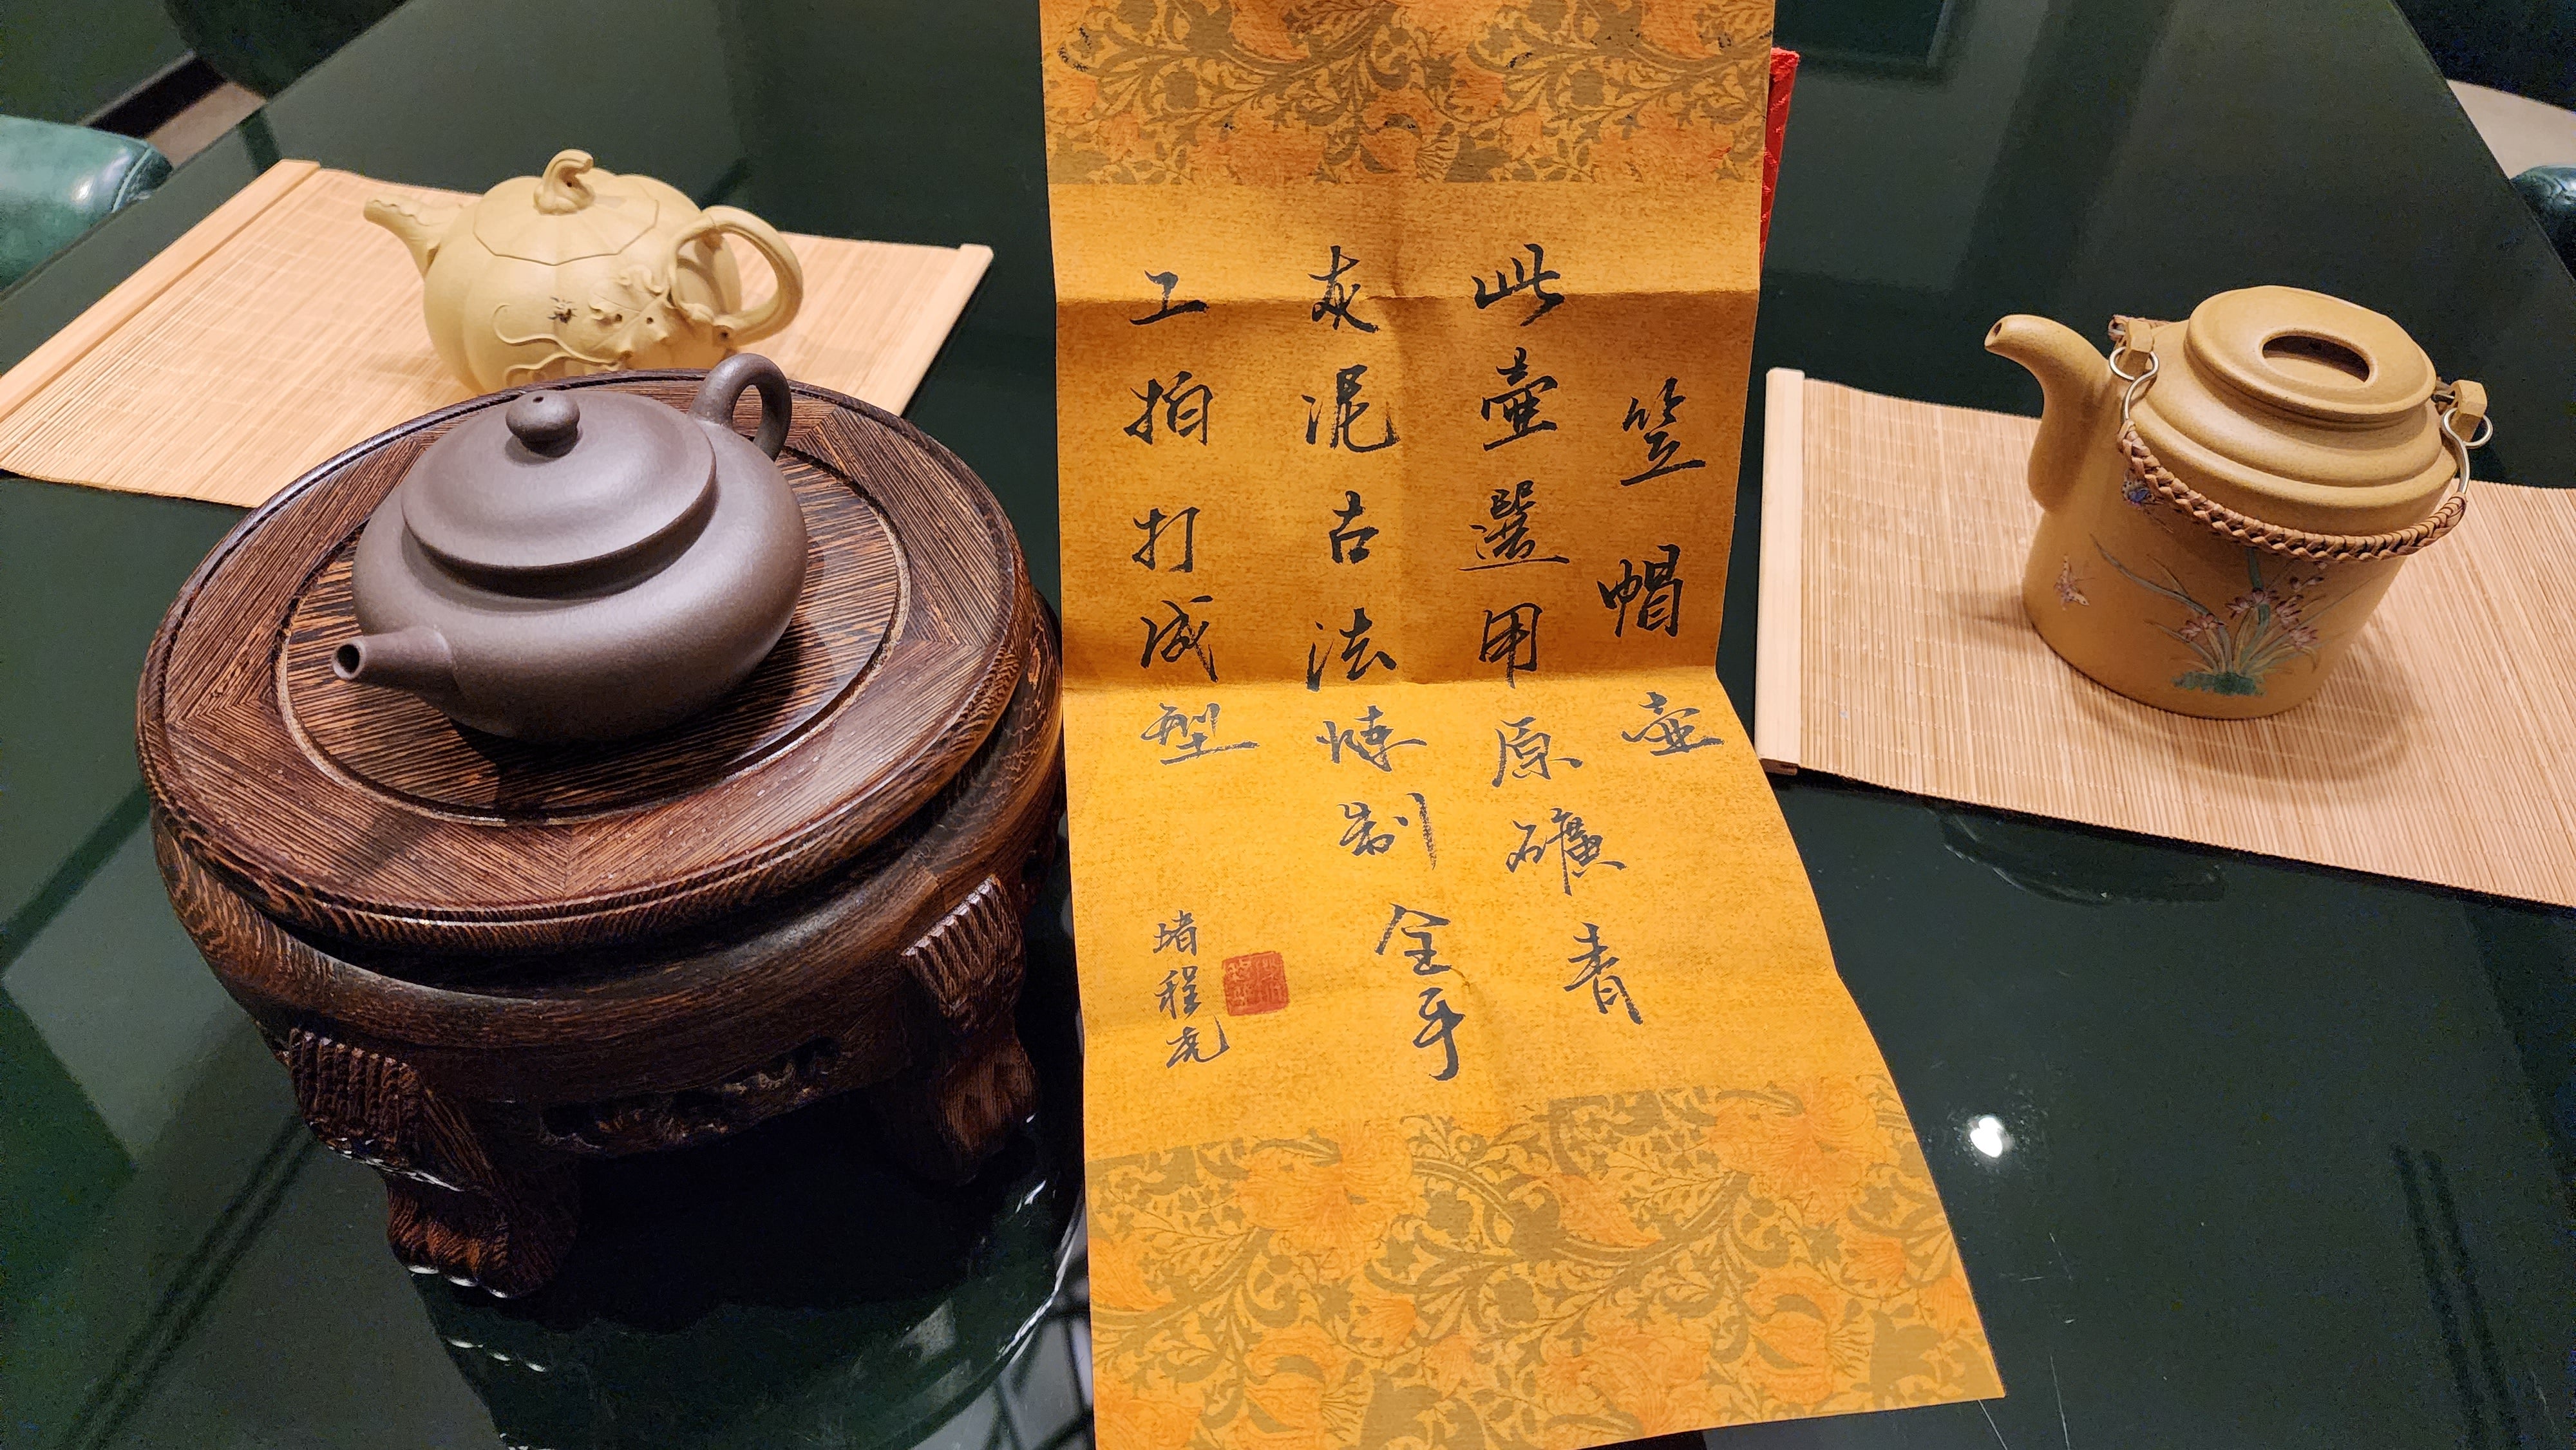 笠帽壶
此壶選用原礦青
灰泥古法炼制全手
工拍打成型
堵程尧